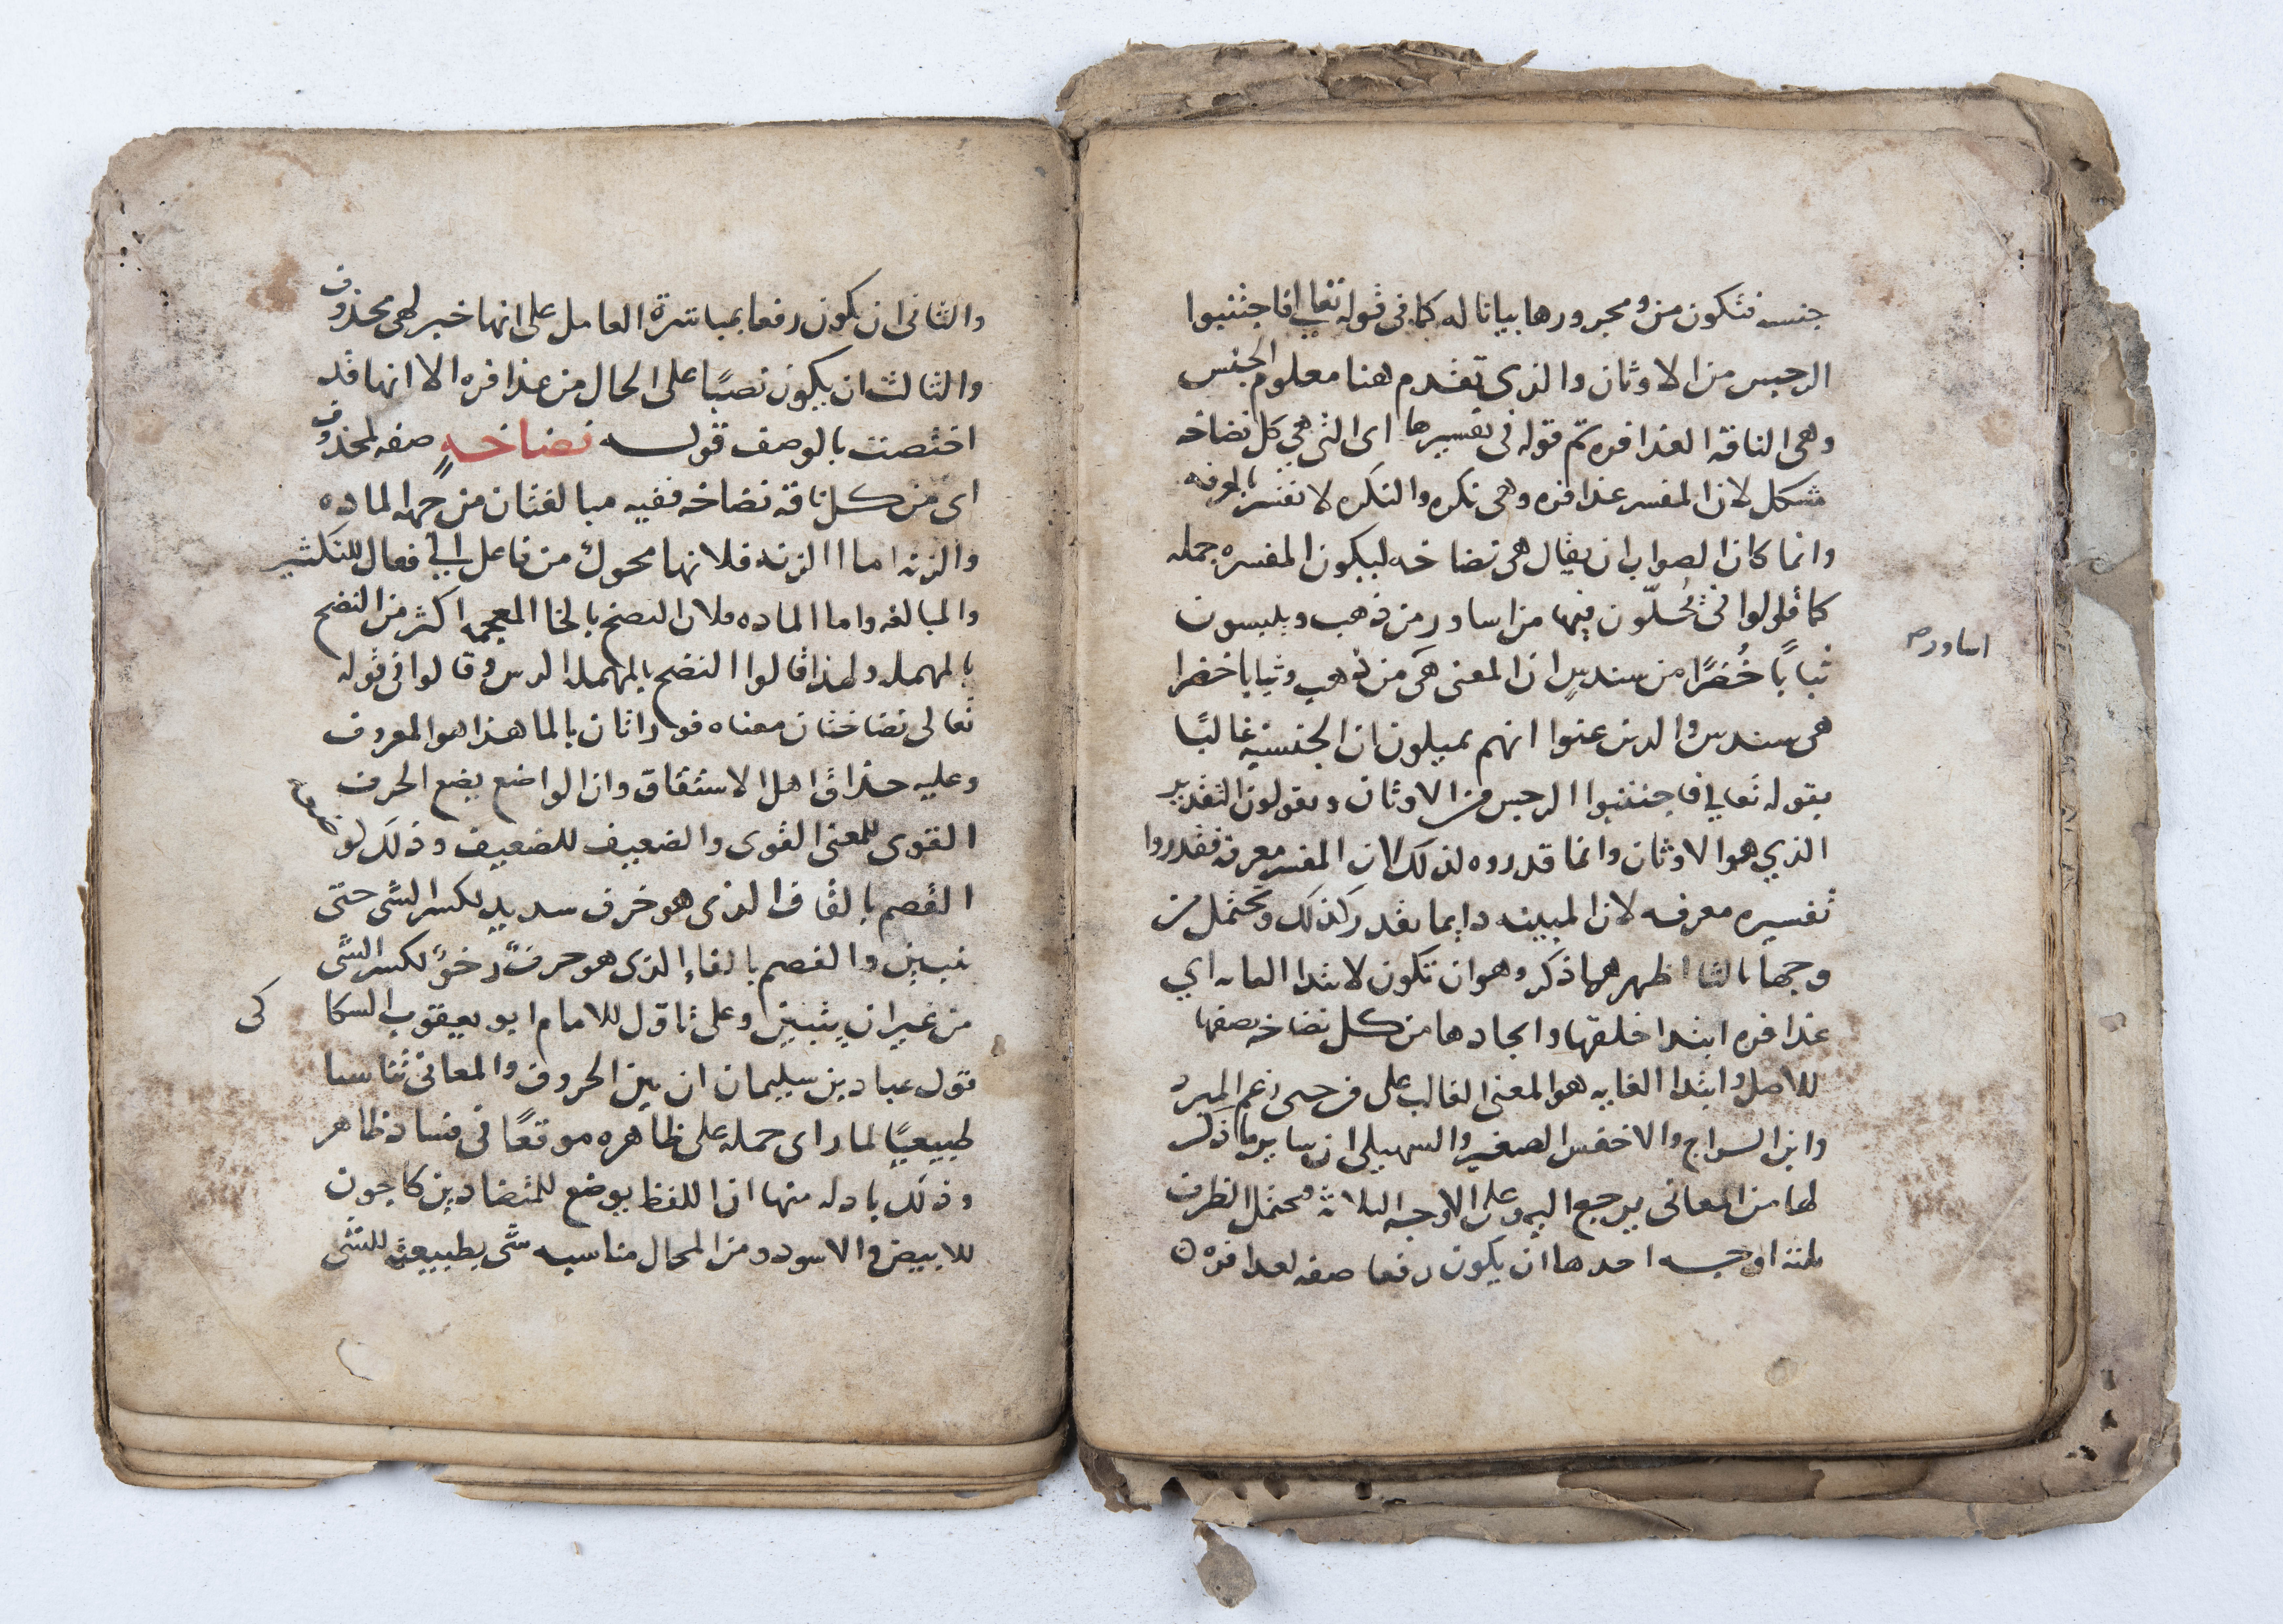 جنسه فتكون من ومجرورها بيانا له كما فى قوله تعالى فاجتنبوا
الرجس من الاوثان والذى تقدم هنا معلوم الجنس
وهى الناقة العذافره ثم قوله فى تفسيرها اى التى هى كل نضاخه
مشكل لان المفسر عذافره وهى نكره والنكره لا تفسر بالمعرفه
وانما كان الصواب ان يقال هى نضاخه ليكون المفسره جمله
كما قالوا فى يُحلّون فيها من اساور من ذهب ويلبسون
اساور صح
ثيابًا خُضرًا من سندسٍ ان المعنى هى من ذهب وثيابا خضرا
هى سندس والذين عنوا انهم يمثلون ان الجنسيه غالبًا
بقوله تعالى فاجتنبوا الرجس من الاوثان ويقولون التقدير
الذي هو الاوثان وانما قدروه لذلك لان المفسر معرفه فقدروا
تفسيره معرفه لان المبينه دايما تقدر كذلك وتحتمل من
وجها ثالثا اظهر مما ذكر وهو ان تكون لابتدا الغايه اي
عذافره ابتدا خلقها وايجادها من كل نضاخه يصفها
للاصل وابتدا الغايه هو المعنى الغالب على من حتى زعم المبرد
وابن السراج والاخفش الصغير والسهيلى ان ساير ما ذكر
لها من المعانى يرجع اليه وعلى الاوجه الثلاثه فيحتمل الظرف
ثلثة اوجه احدها ان يكون رفعا صفه لعذافره
والثانى ان يكون رفعا بمباشرة العامل على انها خبر لهى محذوف
والثالث ان يكون نصبًا على الحال من عذافره الا انها قد
اختصت بالوصف قوله نضاخةٍ صفه لمحذوف
اى من كل ناقة نضاخه ففيه مبالغتان من جهه الماده
والزنه اما الزنه فلانها محول من فاعل الى فعال للتكثير
والمبالغه واما الماده فلان النضخ بالخا المعجمه اكثر من النضح
بالمهمله ولهذا قالوا النضح بالمهمله الرش وقالوا فى قوله
تعالى نضاختان معناه فوارتان بالما هذا هو المعروف
وعليه حذاق اهل الاشتقاق وان الواضع يضع الحرف
القوى للمعنى القوى والضعيف للضعيف وذلك
القصم بالقاف الذى هو حرف شديد لكسر الشى حتى
يبين والفصم بالفاء الذى هو حرفٌ رخوٌ لكسر الشى
من غير ان يتبين وعلى تاول الامام ابو يعقوب السكا
كى
قول عباد بن سليمان ان بين الحروف والمعانى تناسبا
طبيعيًا لما راى حمله على ظاهره موقعًا فى فساد ظاهر
وذلك بادله منها ان اللفظ يوضع للمتضادين كالجون
للابيض والاسود ومن المحال مناسبه شى بطبيعته للشى